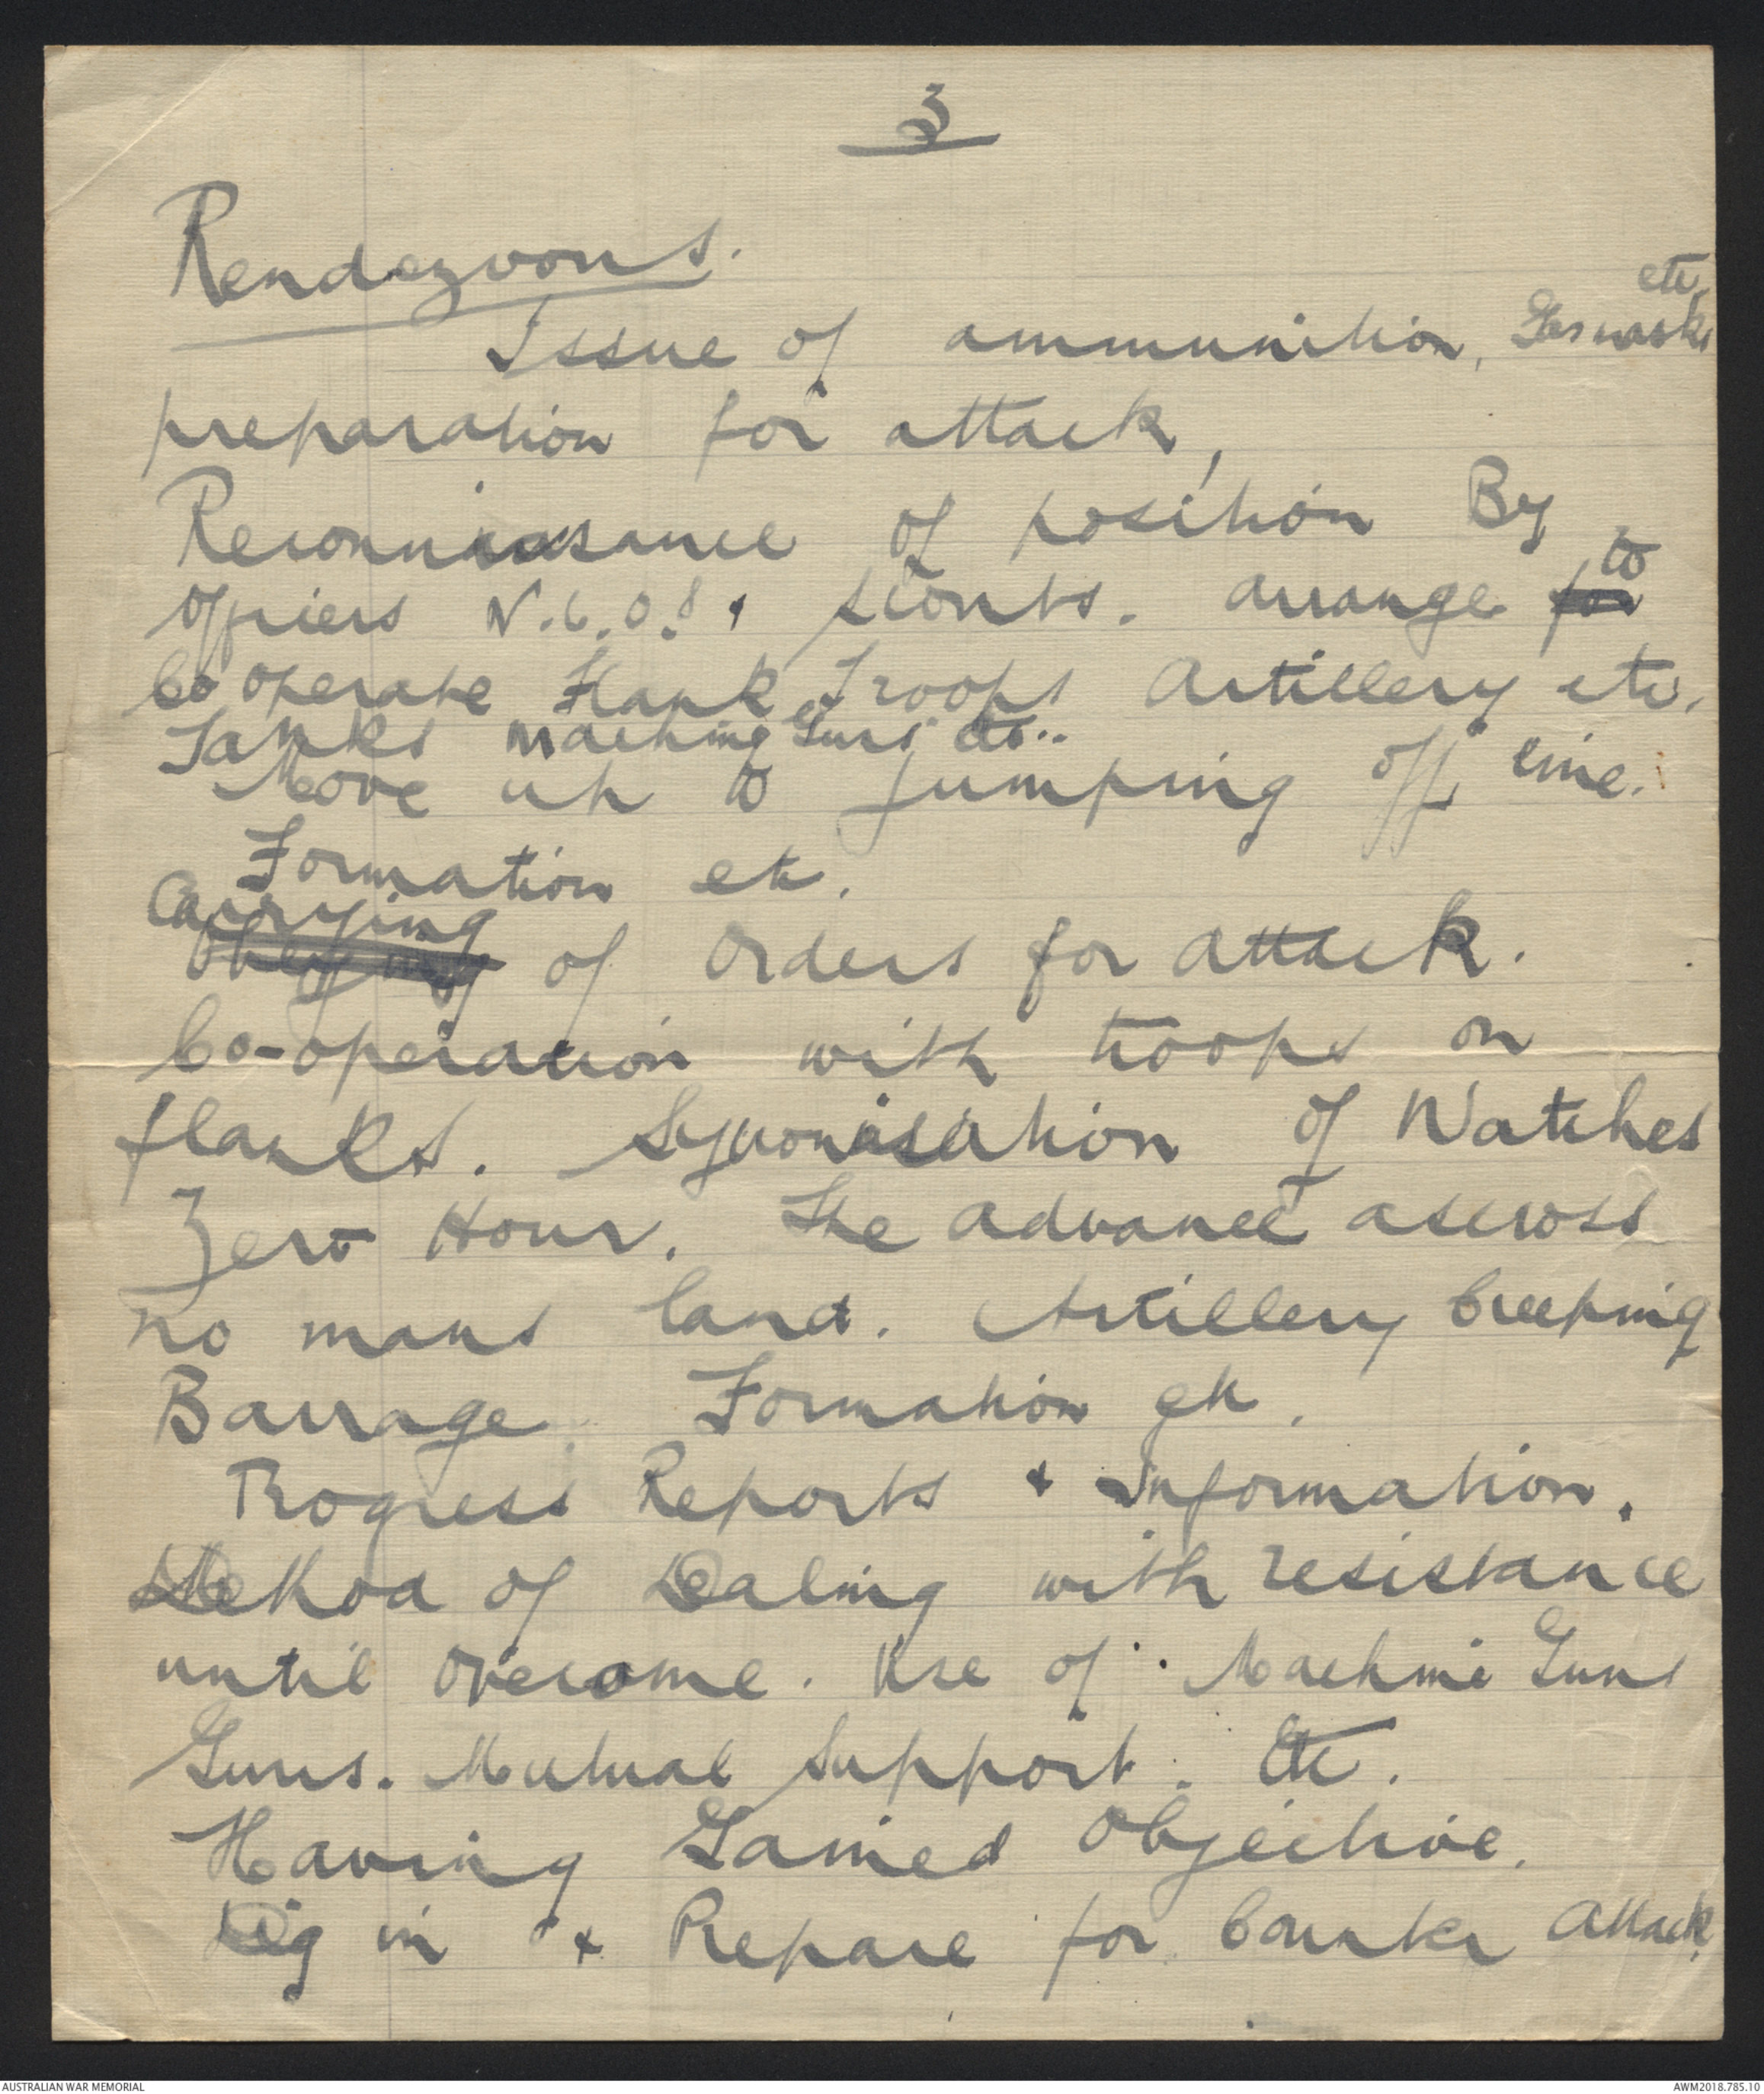 3
Rendezvous.
Issue of ammunition, Gas masks etc.
preparation for attack,
Reconnaissance of position By
Officers N.C.O.s & scouts. arrange for to
Co operate Flank Troops Artillery etc.
Tanks machine Guns etc..
Move up to jumping off line.
Formation etc.
Carrying
of Orders for attack.
Co-operation with troops on
flanks. Sycronisation of Watches
Zero Hour. The advance accross
no mans land. Artillery Creeping
Barrage. Formation etc.
Progress Reports & Information.
Method of Dealing with resistance
until overcome. Use of Machine Guns
Guns. Mutual Support. Etc.
Having Gained Objective.
Dig in & Prepare for Counter Attack.
AUSTRALIAN WAR MEMORIAL
AWM2018.785.10